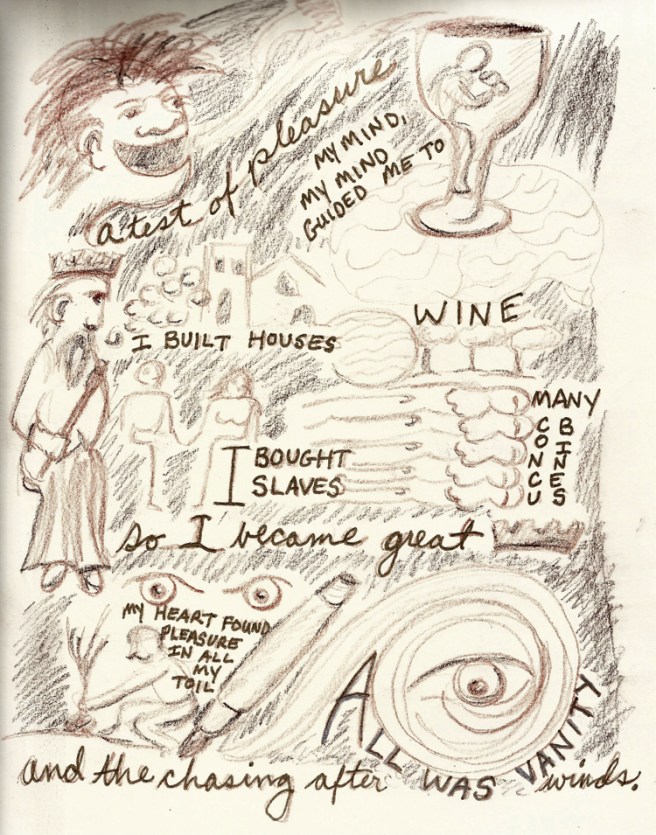 a test of pleasure
MY MIND,
MY MIND
GUIDED ME TO
WINE
I BUILT HOUSES
MANY
CONCU
BINES
I BOUGHT
SLAVES
so I became great
MY HEART FOUND
PLEASURE
IN ALL
MY
TOIL
ALL WAS VANITY
and the chasing after winds.